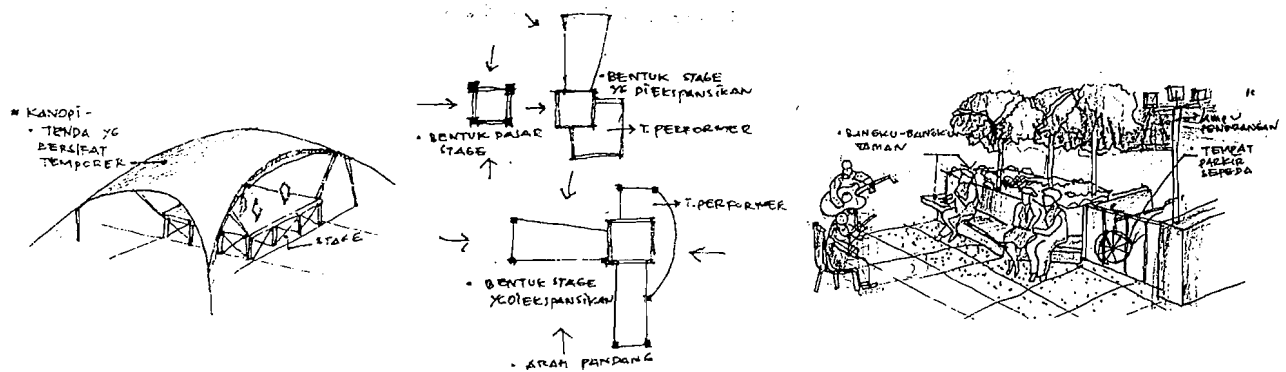 * KANOPI -
• TENDA YG
BERSIFAT
TEMPORER
STAGE
• BENTUK DASAR
STAGE
• BENTUK STAGE
YG DIEKSPANSIKAN
T. PERFORMER
T. PERFORMER
• BENTUK STAGE
YG DIEKSPANSIKAN
• ARAH PANDANG
• BANGKU-BANGKU
TAMAN
LAMPU
PENERANGAN
• TEMPAT
PARKIR
SEPEDA